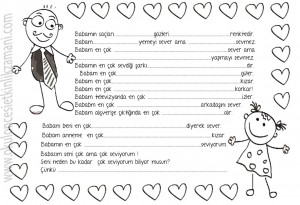 Babamın saçları.................gözleri.......................renktedir.
Babam...................yemeyi sever ama ..................sevmez.
Babam en çok .............................................sever ama
.............................................yapmayı sevmez.
Babamın en çok sevdiği şarkı............................dir.
Babam en çok .............................................güler.
Babam en çok .............................................kızar.
Babam en çok .............................................korkar.
Babam televizyonda en çok .............................izler.
Babam en çok .............................arkadaşını sever.
Babam alışverişe çıktığında en çok .............................alır.
Babam beni en çok.............................diyerek sever.
Babam anneme en çok .............................kızar.
Babamın en çok .............................seviyorum.
Babacım seni çok ama çok seviyorum !
Seni neden bu kadar çok seviyorum biliyor musun?
Çünkü .............................................